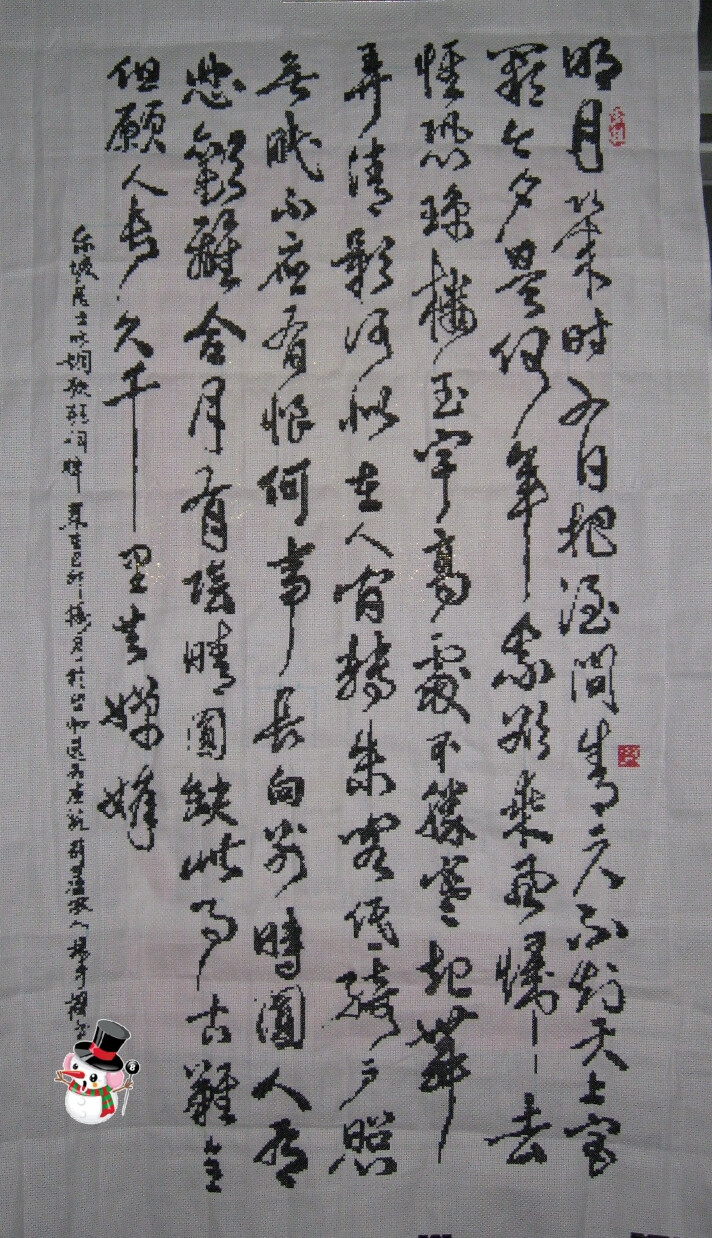 明月幾时有把酒問青天不知天上宫
闕今夕是何年我欲乘風歸去
惟恐瓊樓玉宇高處不勝寒起舞
弄清影何似在人間轉朱閣低綺户照
無眠不應有恨何事長向别時圓人有
悲歡離合月有陰晴圓缺此事古難全
但願人長久千里共嬋娟
東坡居士水調歌頭詞